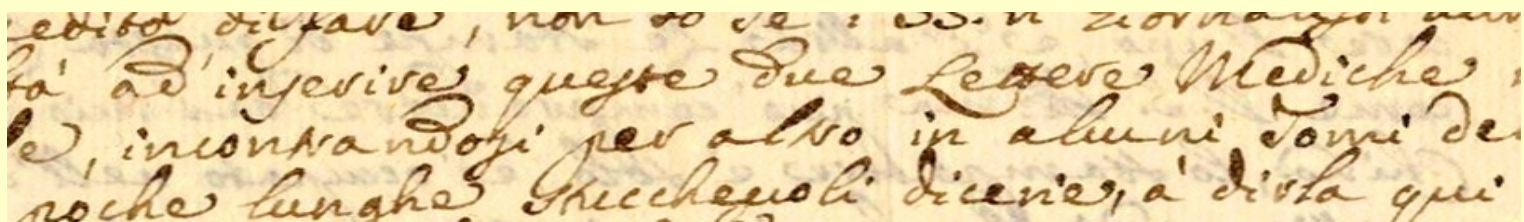 credito di fare, non so se i SS.ri Giornalisti
tà ad inserire queste due Lettere Mediche
le, incontrandosi per altro in alcuni Tomi de
poche lunghe stucchevoli dicerie, à dirla qui